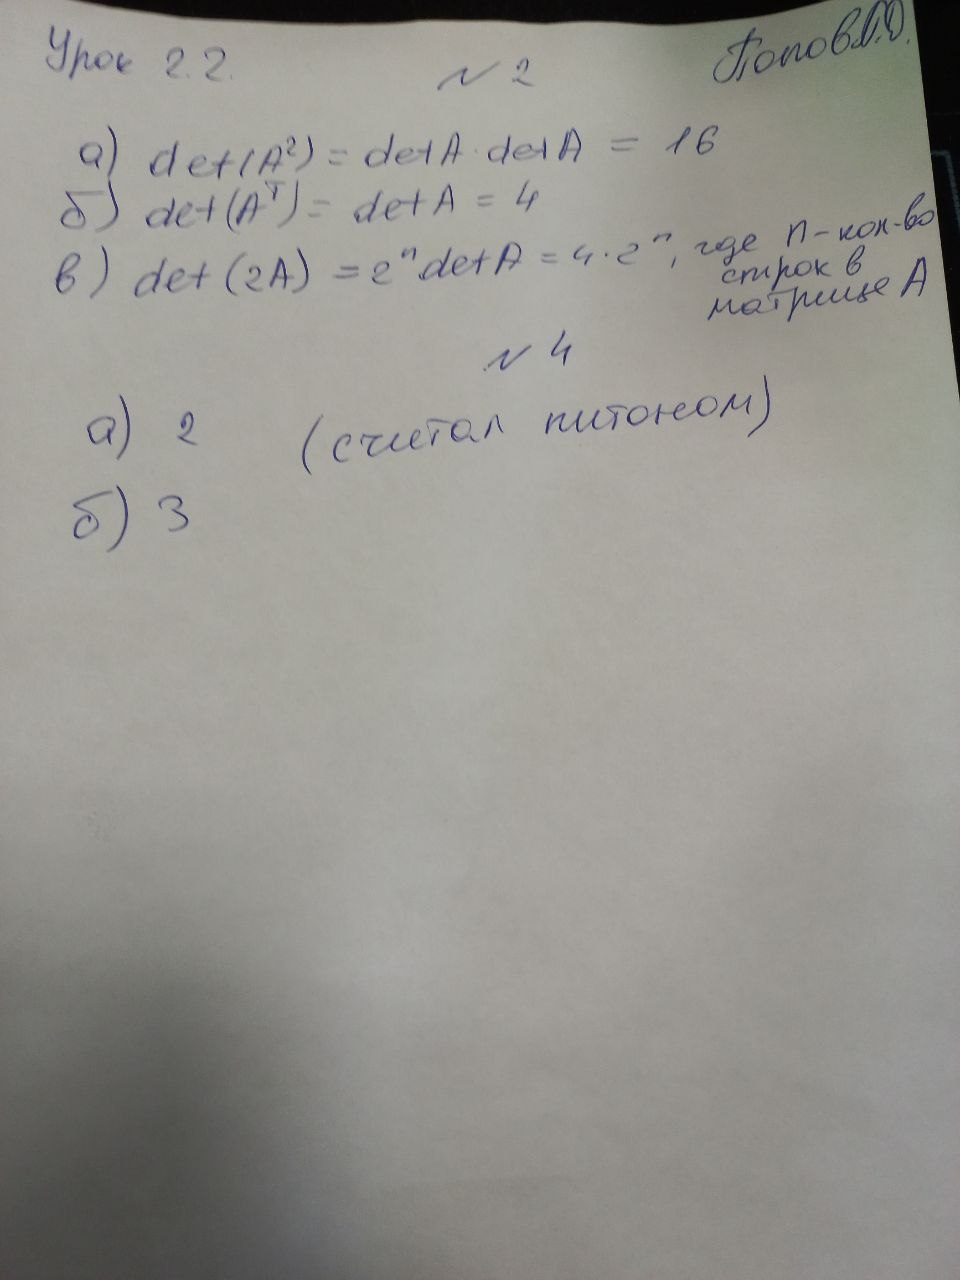 Урок 2.2.
Попов Д.Д.
№ 2
а) det(A²) = detA · detA = 16
б) det(Aᵀ) = detA = 4
в) det(2A) = 2ⁿ·detA = 4·2ⁿ, где n - кол-во
строк в
матрице A
№ 4
а) 2 (считал питоном)
б) 3